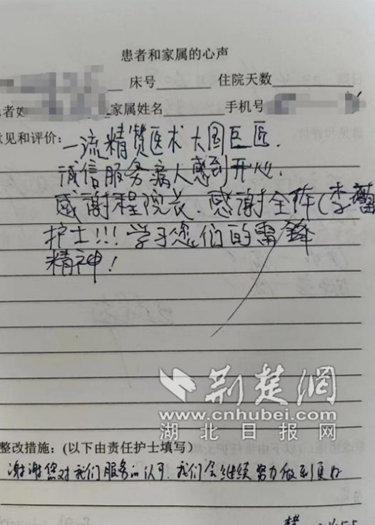 患者和家属的心声
床号 住院天数
者 家属姓名 手机号
见和评价: 一流精赞医术大国巨医
诚信服务病人感到开心
感謝程院长.感謝全体(李蕾
护士!!!学习您们的雷鋒
精神!
荆楚网
www.cnhubei.com
湖北日报网
整改措施:(以下由责任护士填写)
谢谢您对我们服务的认可,我们会继续努力做到更好